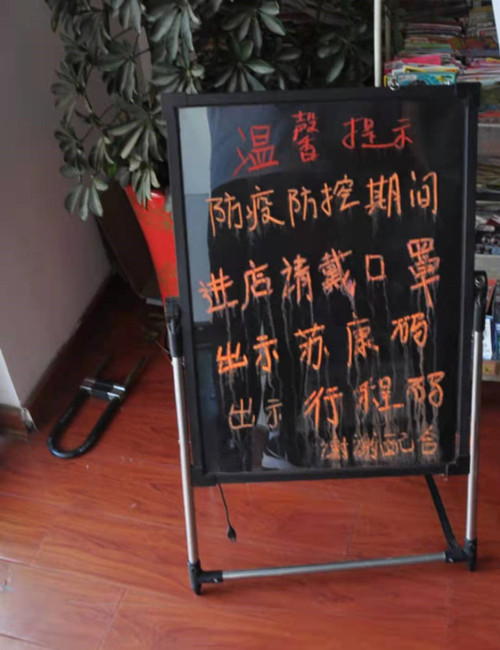 温馨提示
防疫防控期间
进店请戴口罩
出示苏康码
出示行程码
谢谢配合